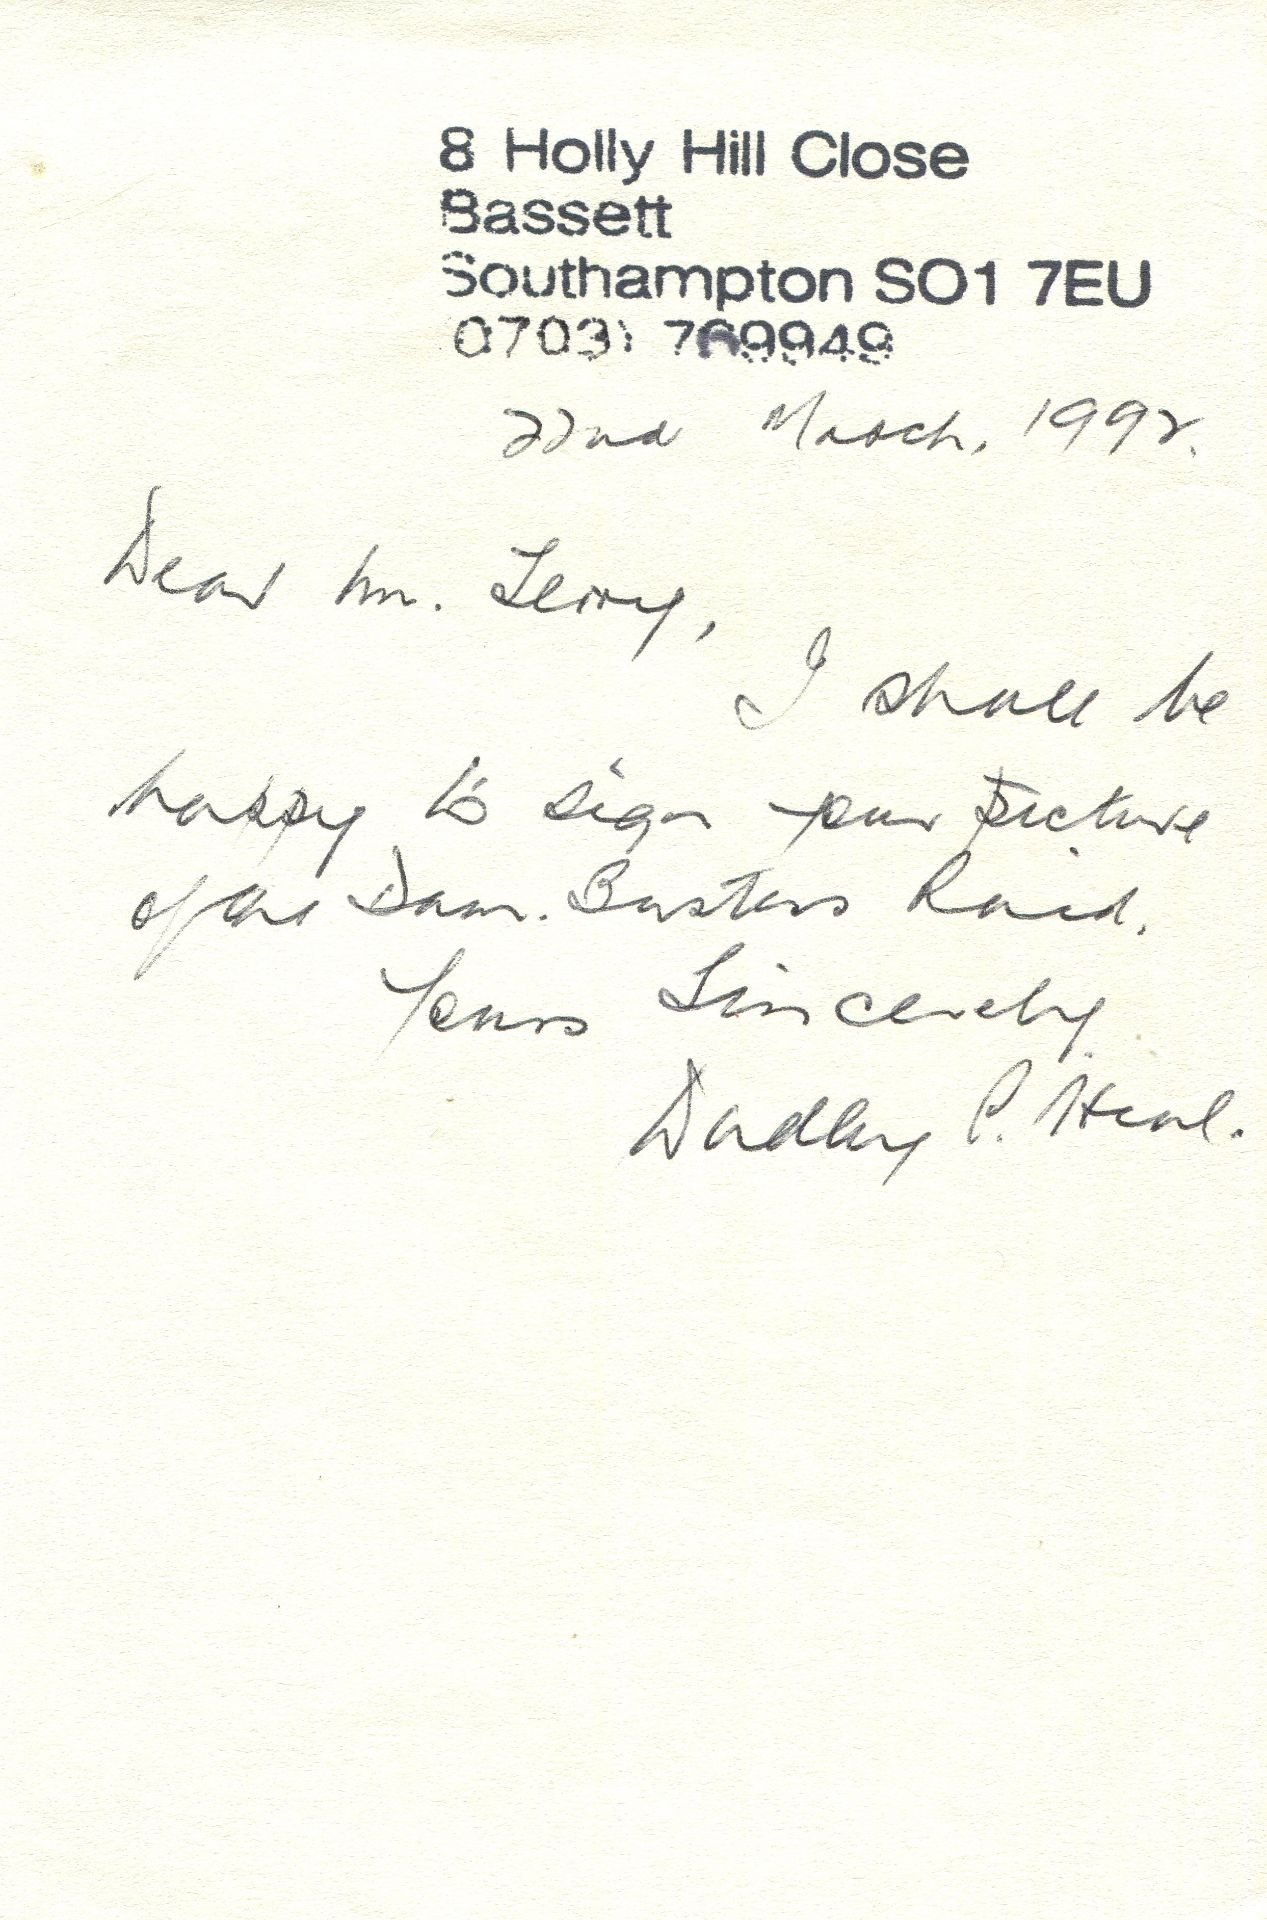 8 Holly Hill Close
Bassett
Southampton SO1 7EU
0703) 769949
22nd March, 1992.
Dear Mr. Terry,
I shall be
happy to sign your picture
of the Dam. Busters Raid.
Yours Sincerely
Dudley P. Heal.